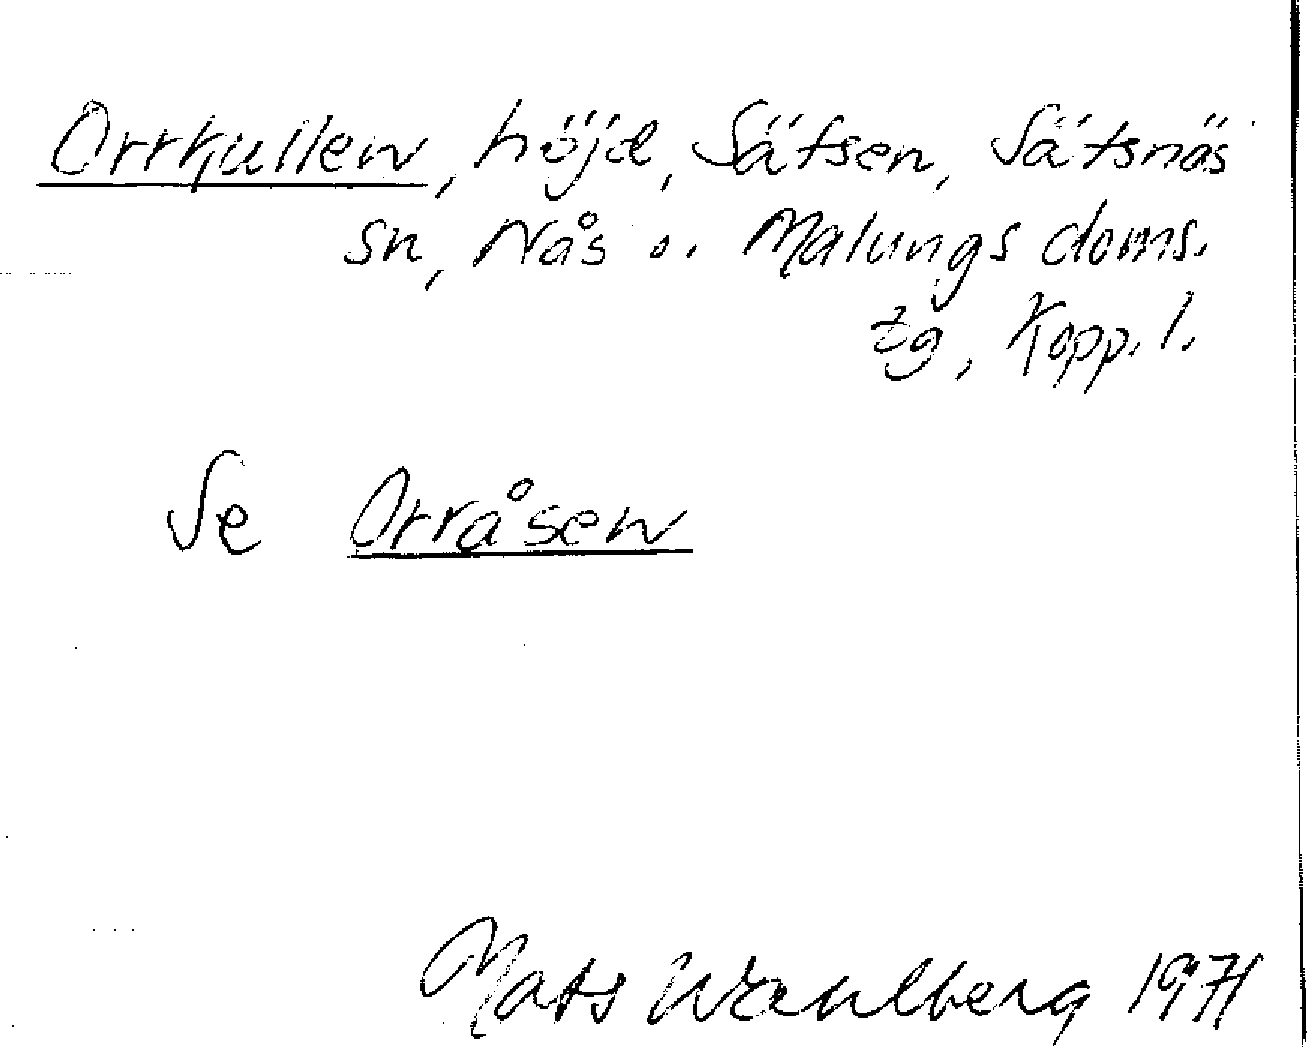 Orrkullen, höjd, Sätsen, Sätsnäs
sn, Nås o. Malungs doms.
tg, Kopp. l.
Se Orråsen
Mats Wahlberg 1971